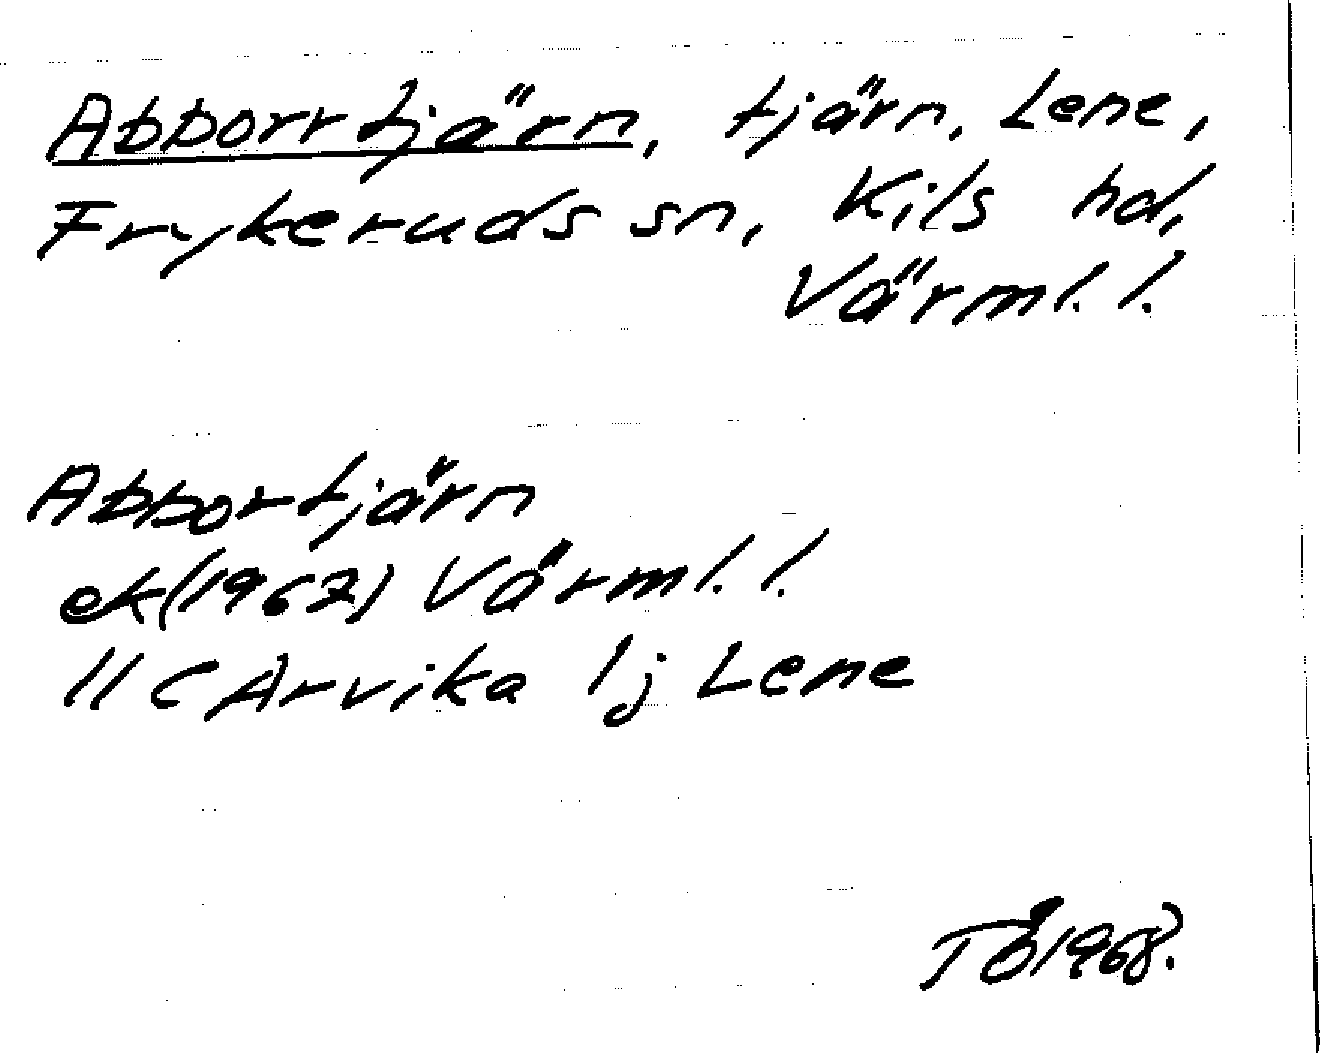 Abborrtjärn, tjärn, Lene,
Frykeruds sn, Kils hd,
Värml. l.
Abbortjärn
ek (1967) Värml. l.
11 C Arvika lj Lene
TÖ 1968.